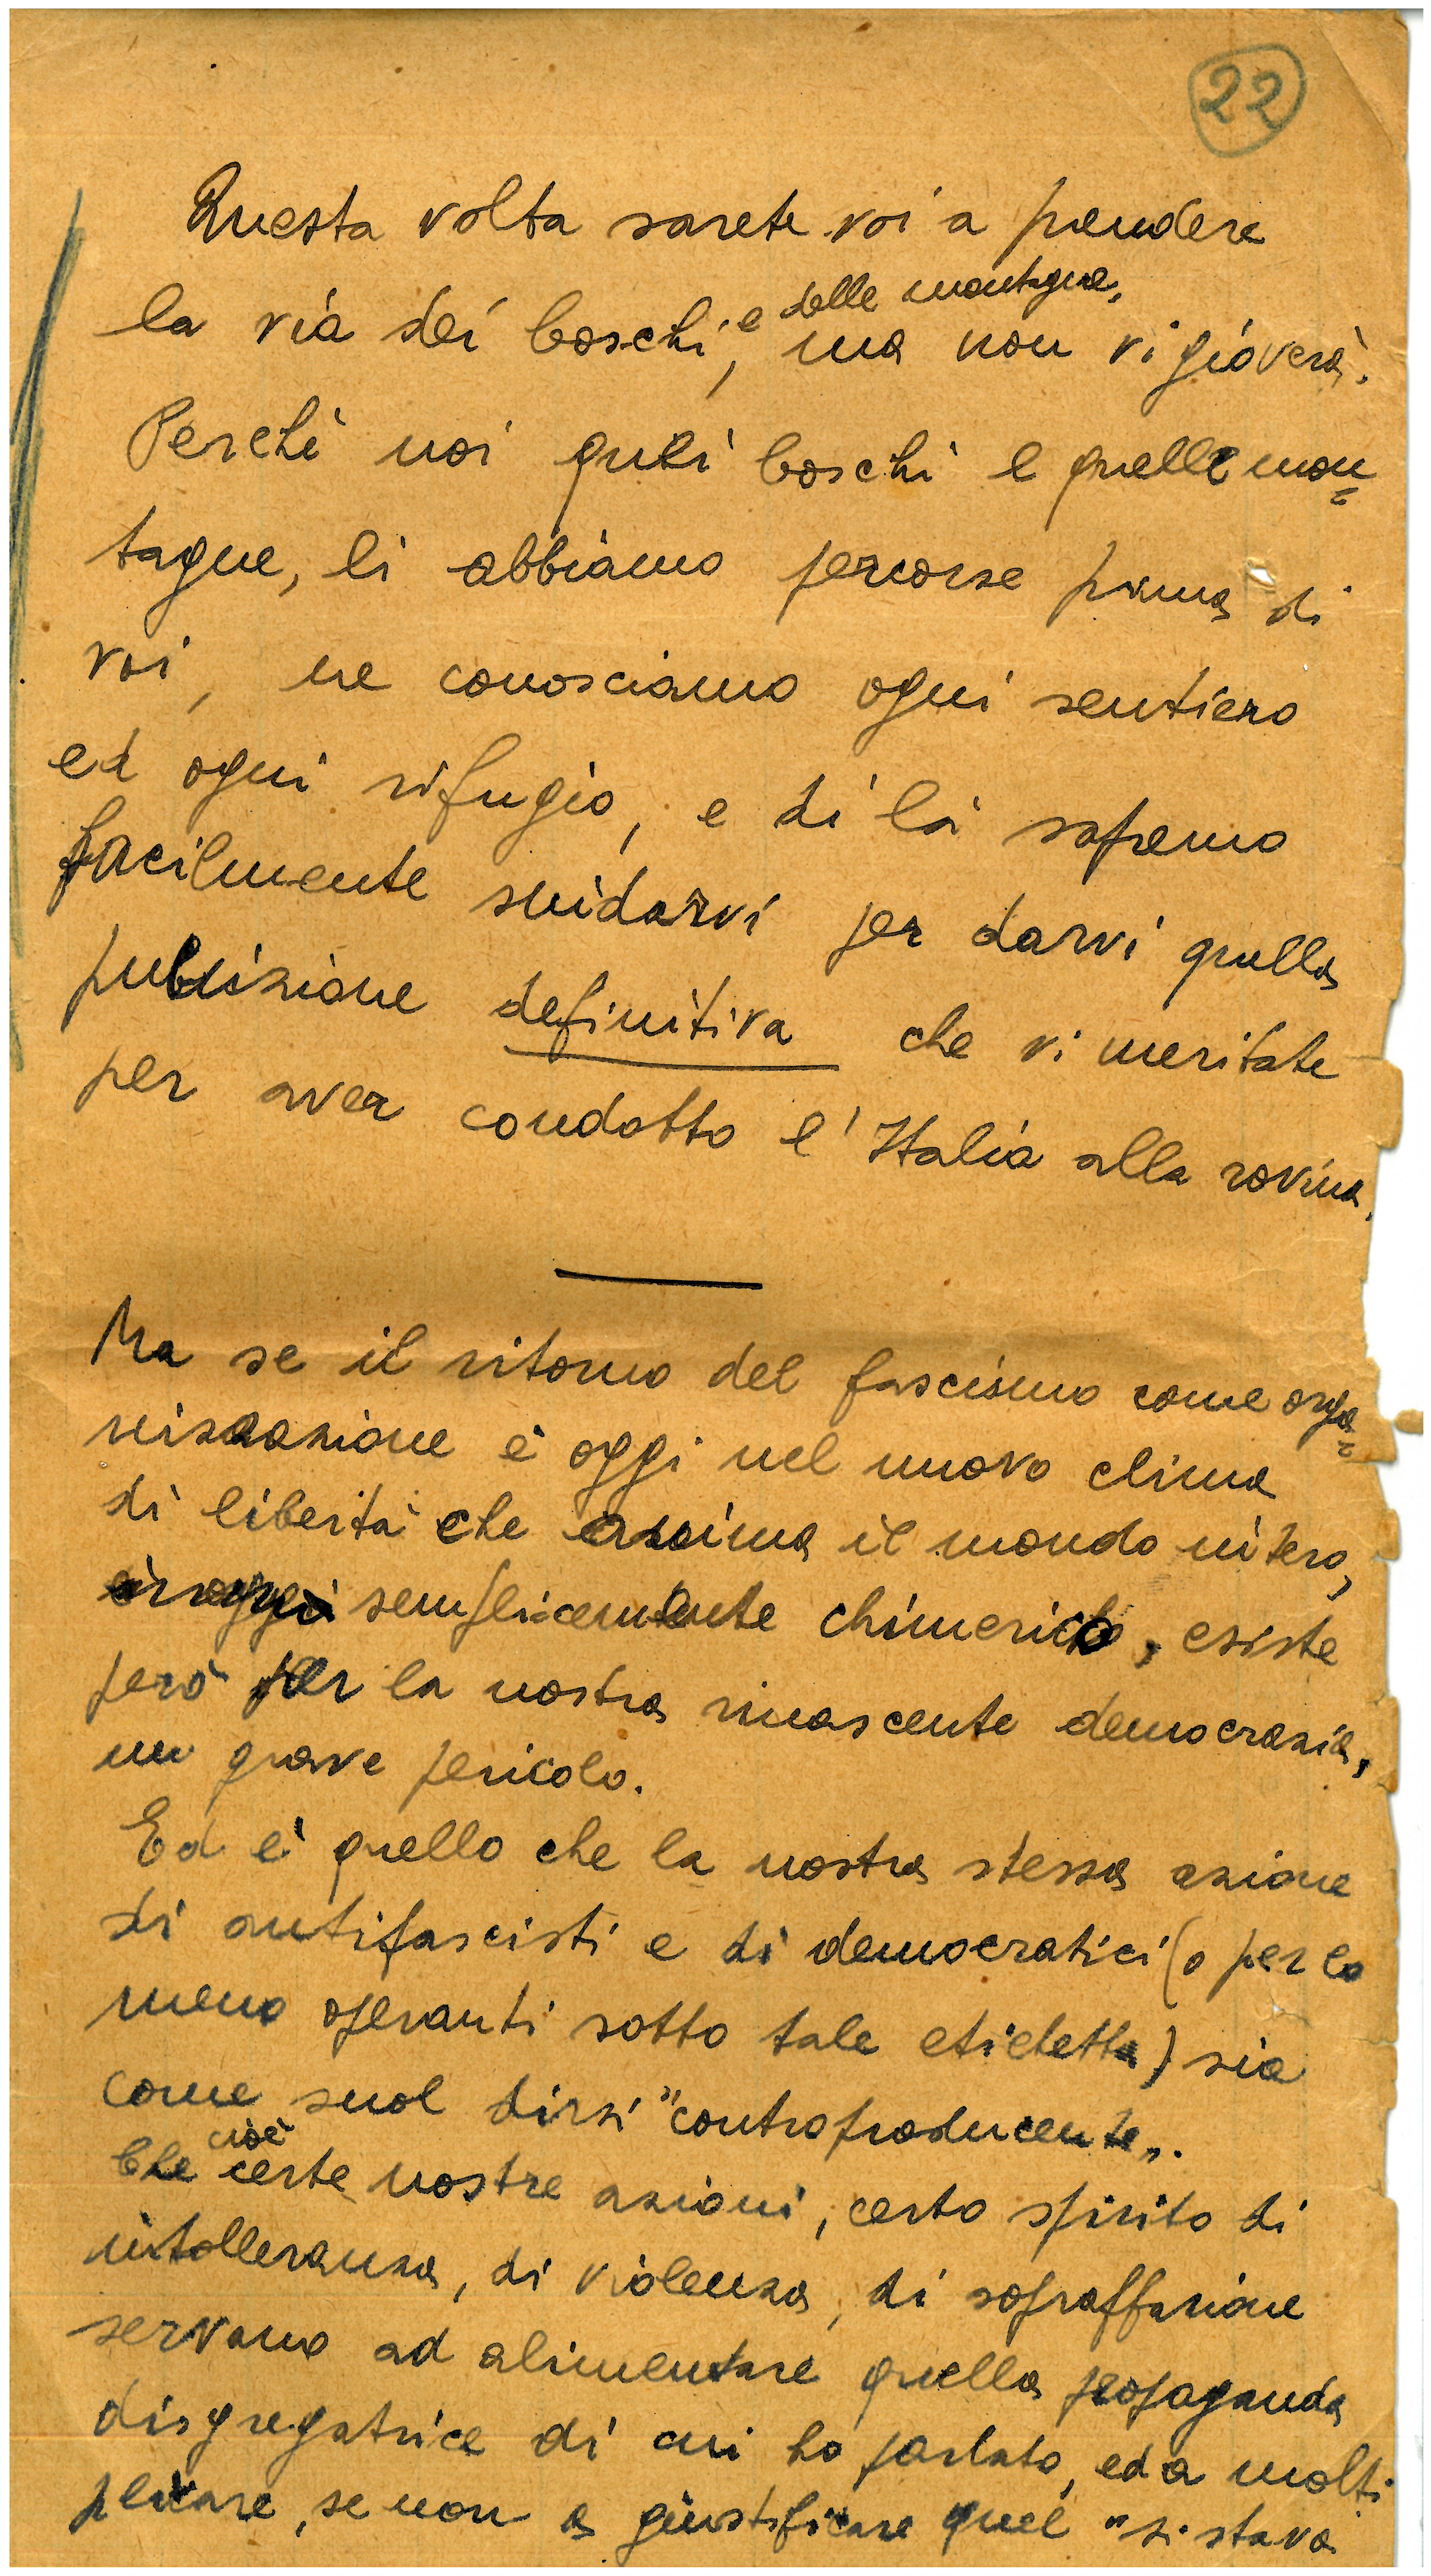 22
Questa volta sarete voi a prendere
la via dei boschi, e delle montagne,
ma non vi gioverà.
Perchè noi quei boschi e quelle mon=
tagne, li abbiamo percorse prima di
voi, ne conosciamo ogni sentiero
ed ogni rifugio, e di là sapremo
facilmente snidarvi per darvi quella
punizione definitiva che vi meritate
per aver condotto l'Italia alla rovina.
Ma se il ritorno del fascismo come orga=
nizzazione è oggi nel nuovo clima
di libertà che anima il mondo intero,
semplicemente chimerico, esiste
però per la nostra rinascente democrazia,
un grave pericolo.
Ed è quello che la nostra stessa azione
di antifascisti e di democratici (o per lo
meno operanti sotto tale etichetta) sia
come suol dirsi "controproducente„.
Che cioè certe nostre azioni, certo spirito di
intolleranza, di violenza, di sopraffazione
servano ad alimentare quella propaganda
disgregatrice di cui ho parlato, ed a molti
plicare, se non a giustificare quel "si stava